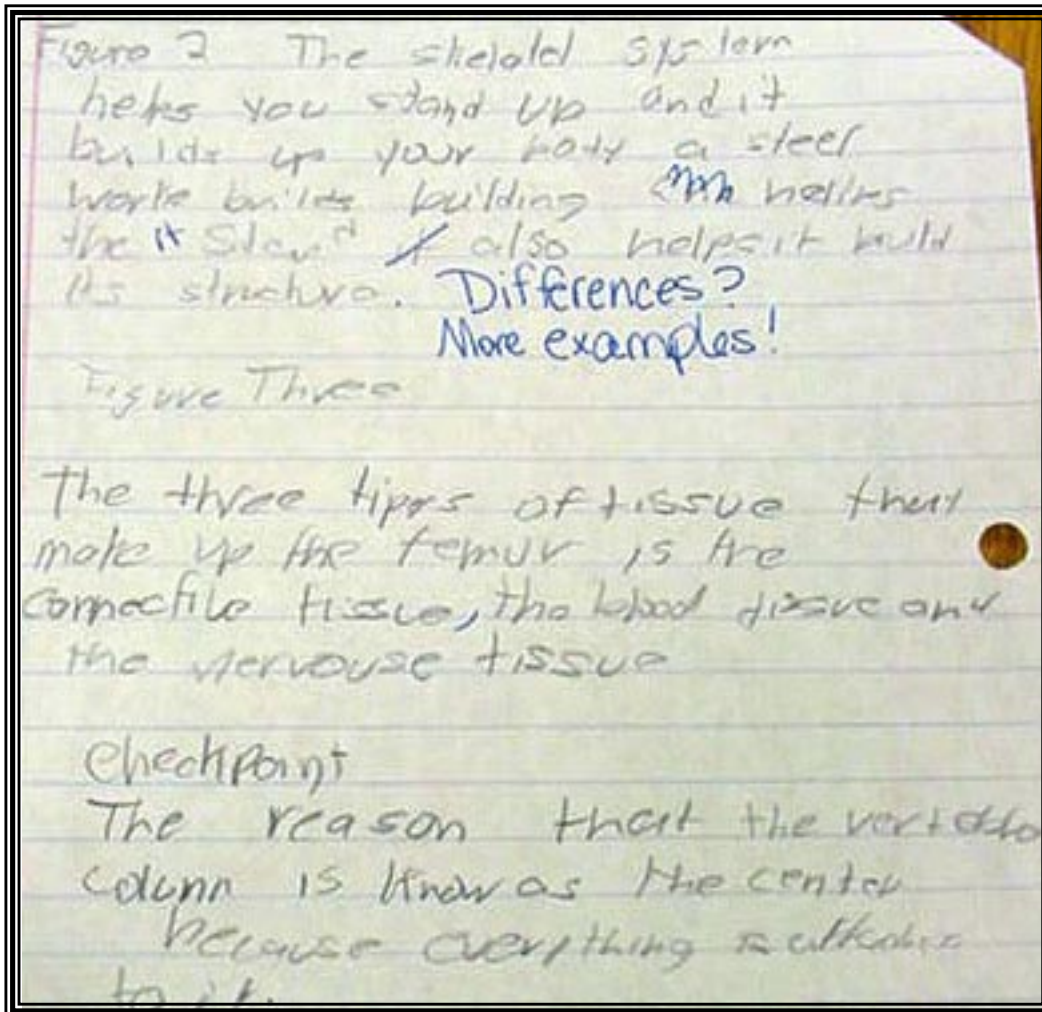 Figure 2 The skelald system
helps you stand up and it
builds up your body a steel
work builds building helps
the it Stand also helps it build
its structure. Differences?
More examples!
Figure Three
The three tipes of tissue that
make up the femur is the
connectile tissue, the blood tissue and
the nervouse tissue
Checkpoint
The reason that the
column is know as the center
because everything is
to it.